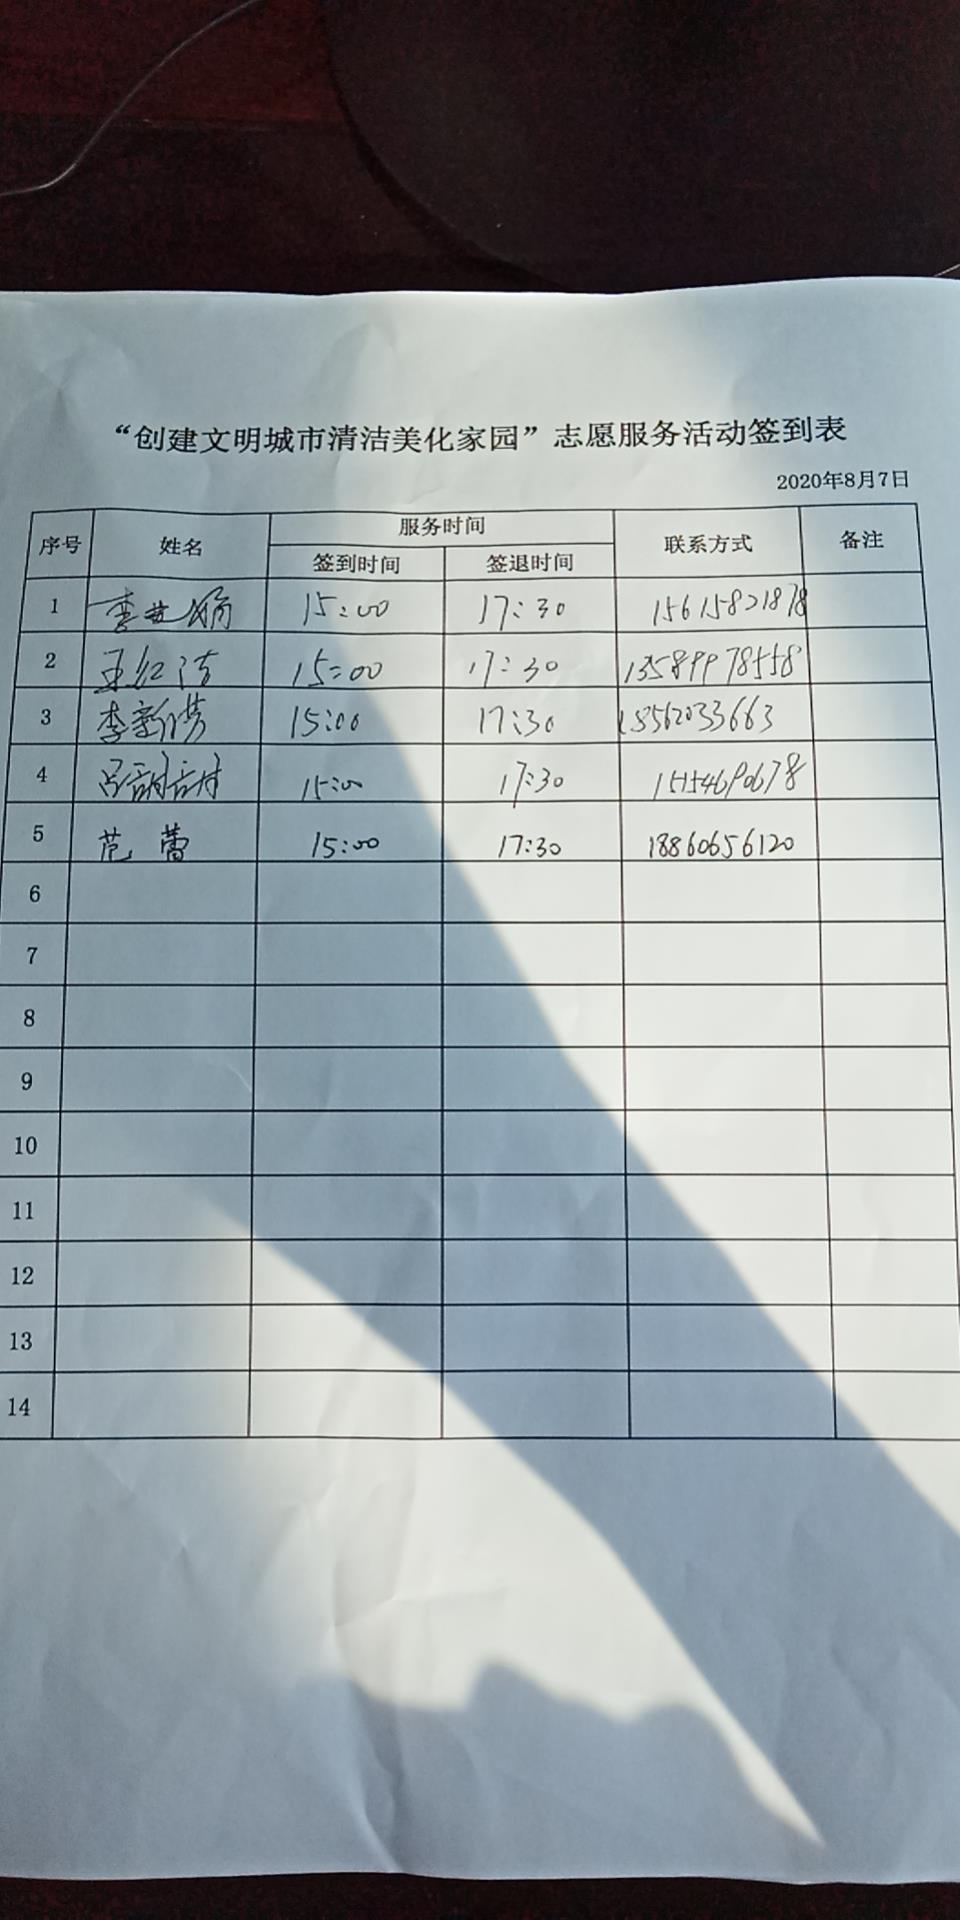 “创建文明城市清洁美化家园”志愿服务活动签到表
2020年8月7日
序号 姓名 服务时间 联系方式 备注
签到时间 签退时间
1 15:00 17:30 15615821878
2 王红洁 15:00 17:30 13589978558
3 李新 15:00 17:30 18562033663
4 吕甜甜 15:00 17:30 15154690678
5 范蕾 15:00 17:30 18860656120
6
7
8
9
10
11
12
13
14